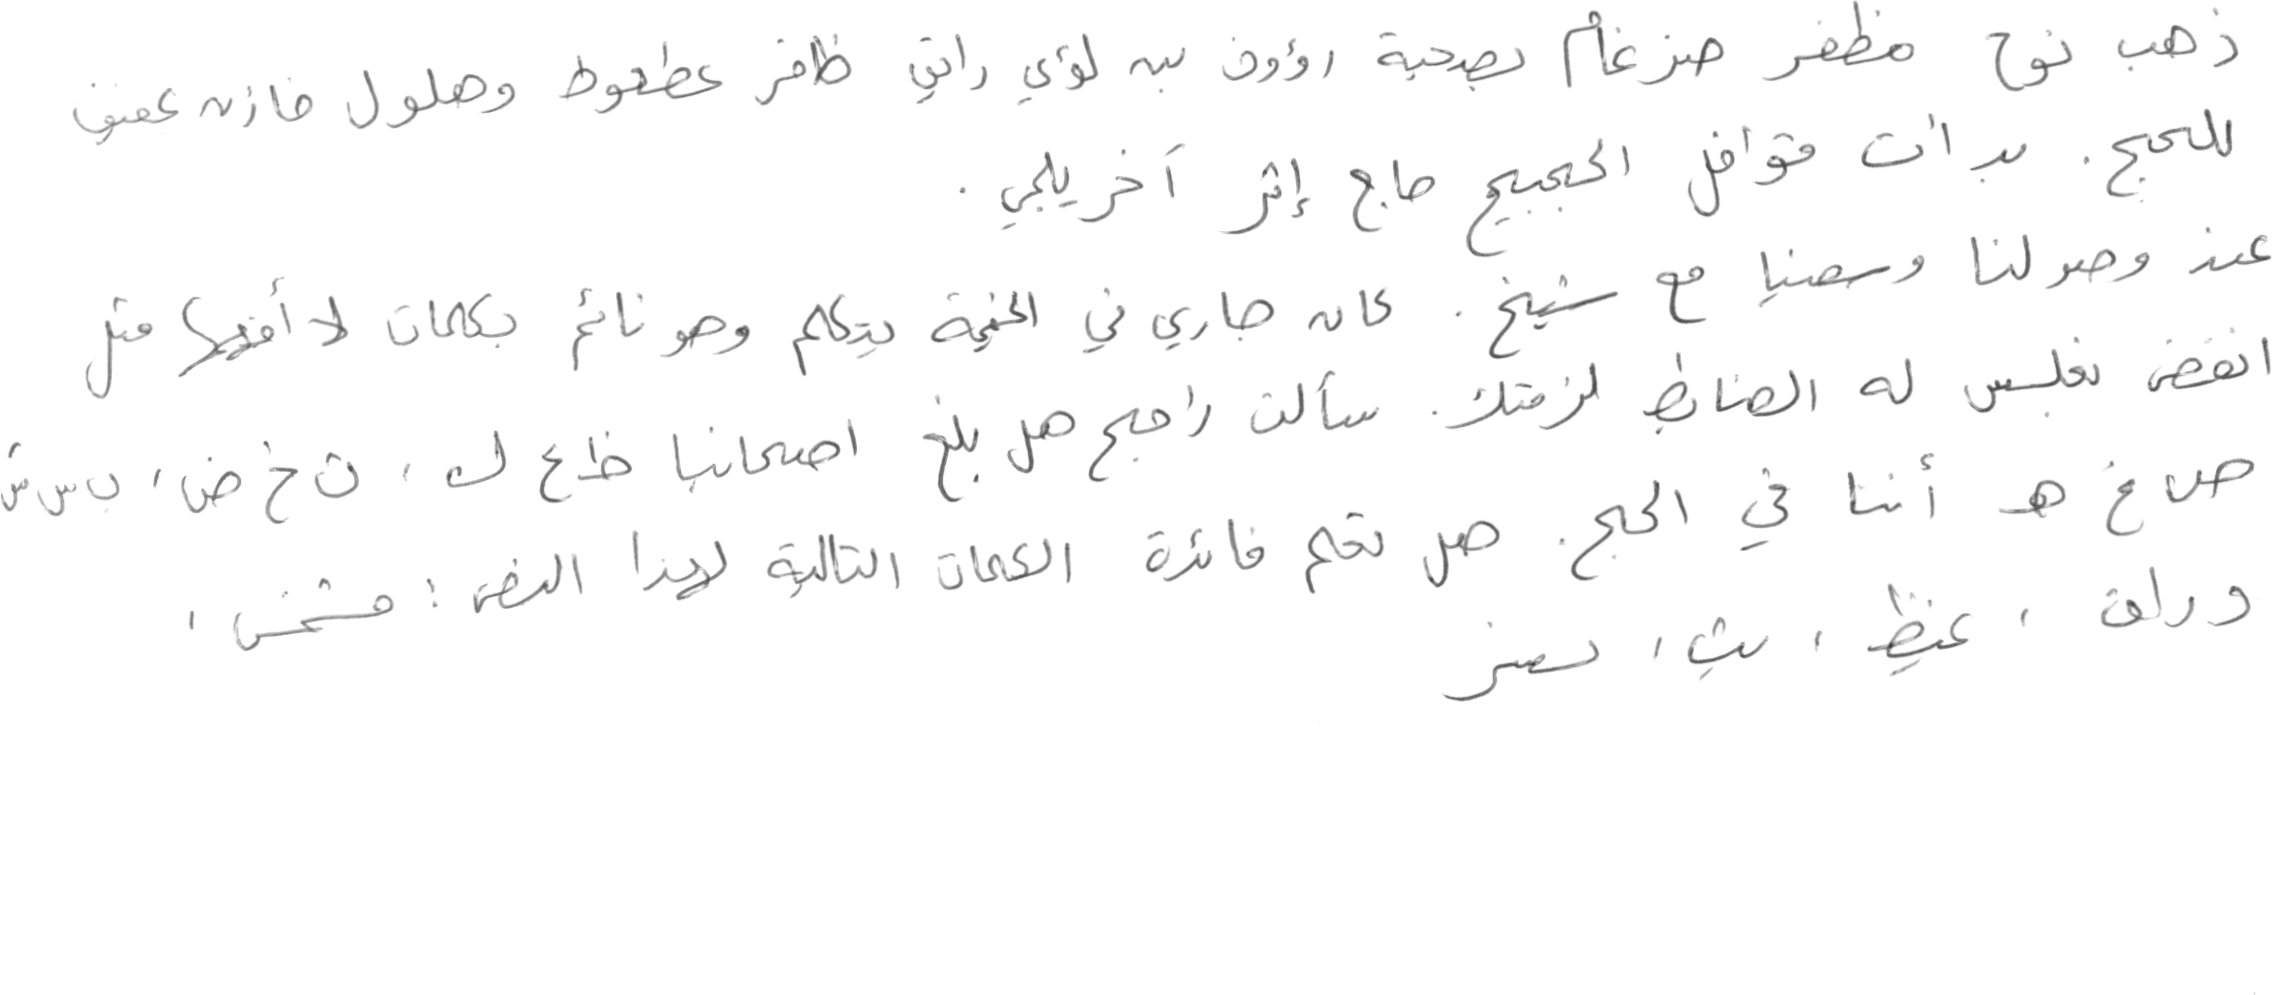 ذهب نوح مظفر ضرغام بصحبة رؤوف بن لؤي راتق ظافر عطعوط وهلول مازن عفيف
للحج. بدأت قوافل الحجيج حاج إثر آخر يلبي.
عند وصولنا وصينا مع شيخ. كان جاري في الخيمة يتكلم وهو نائم بكلمات لا أفهمها مثل
انفض نغلبس له الضابط لزمتك. سألت راجح هل بلغ اصحابنا ظ ع ك، ن خ ض، ب س ش
ص غ هـ أننا في الحج. هل تعلم فائدة الكلمات التالية لهذا النص: مشمش،
ورلق، غيظ، بث، نصز